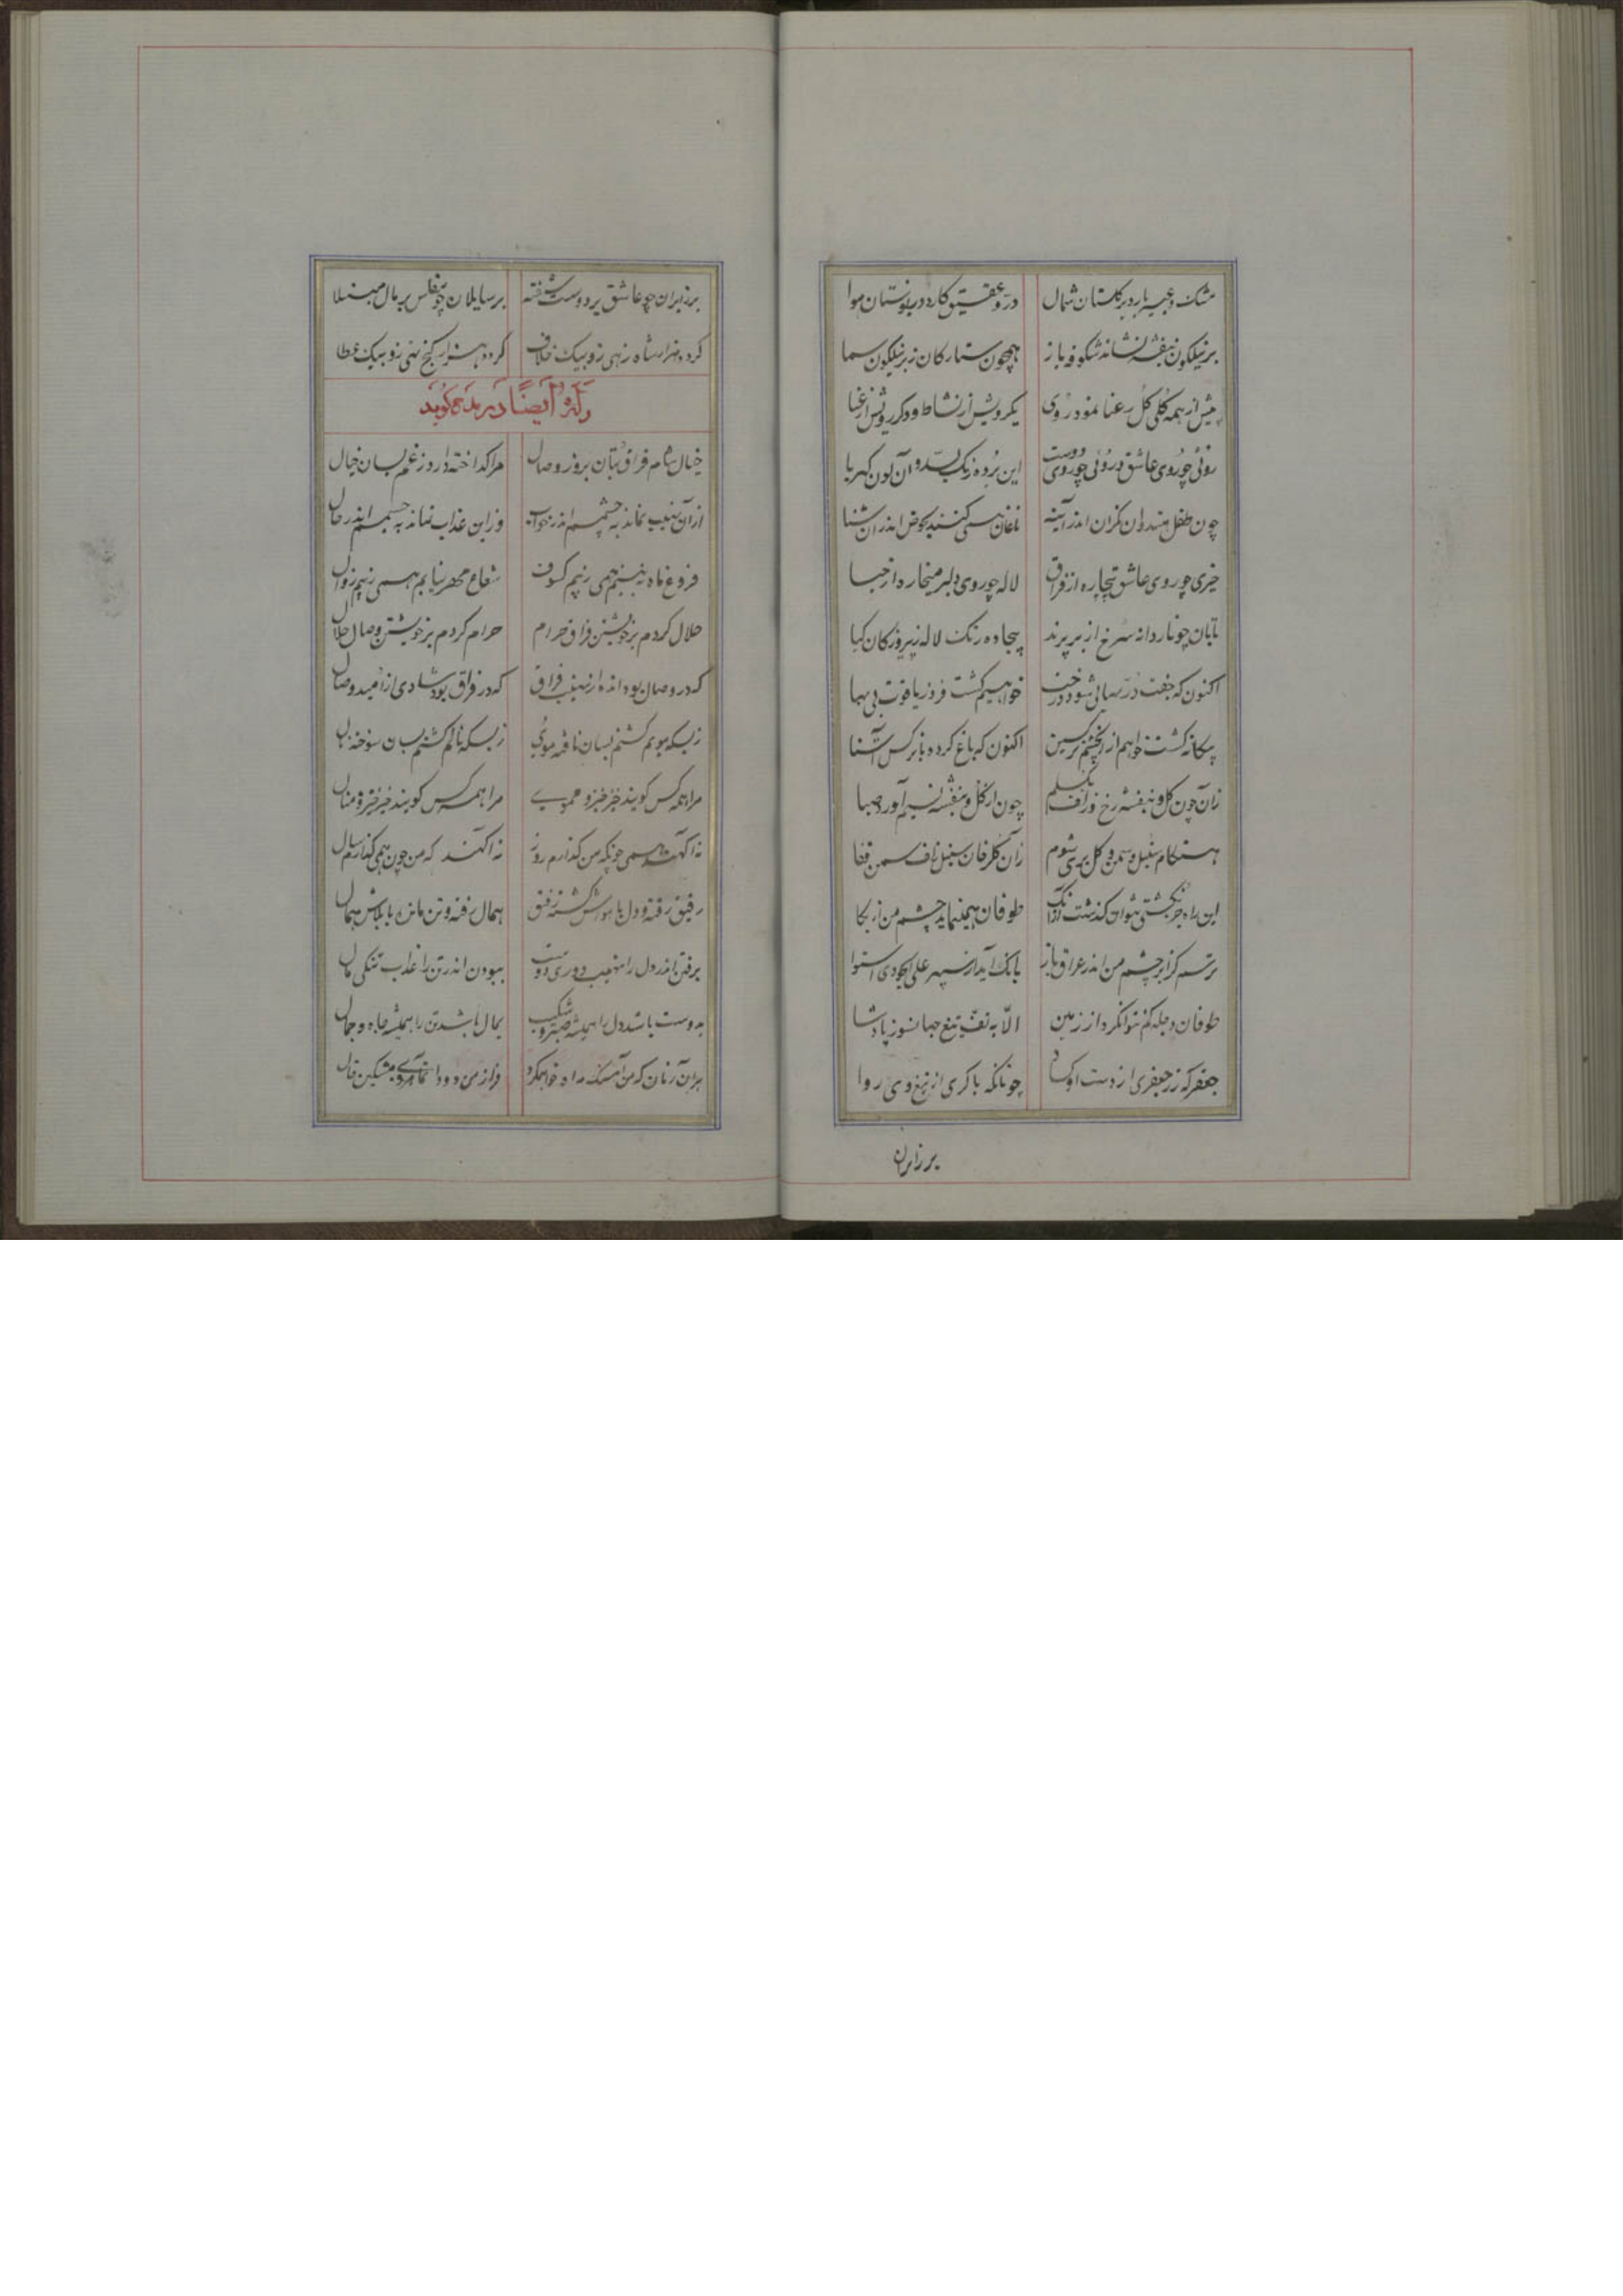 مشک و عبیر بارد بر گلستان شمال درّ و عقیق کارد در بوستان هوا
بر نیلگون بنفشه نشاند شکوفه باز همچون ستارکان ز بر نیلگون سما
پیش از همه گلی گل رعنا نمود روی یکرویش از نشاط و دگر رویش از عنا
روئی چو روی عاشق و روئی چو روی دوست این برده رنگ بسّد و آن لون کهربا
چون طفل هندوان نگران اندر آینه ماغان همی کنند بحوض اندر آن شنا
خیری چو روی عاشق بیچاره از فراق لاله چو روی دلبر میخاره از حیا
تابان چو ناردانه سرخ از بر پرند بیجاده رنگ لاله ز پیروزگان گیا
اکنون که جفت درّ بهائی شود درخت خواهیم گشت فرد ز یاقوت بی بها
بیگانه گشت خواهم از آنچشم نرگسین اکنون که باغ کرده با نرگس آشنا
زان چون گل و بنفشه رخ و زلف چون از گل و بنفشه نسیم آورد صبا
هنگام سنبل و سمن و گل بری شوم زان گلرخان سنبل زلف سمن قفا
این راه جز بکشتی نتوان گذشت از آنک طوفان همینماید چشم من از بکا
ترسم کز ابر چشم من اندر عراق باز بانک آید از سپهر علی الجودی استوا
طوفان دجله کم نتوان کرد از زمین الّا به تفّ تیغ جهانسوز پادشا
جعفر که زر جعفری از دست او چونانکه با از تیغ وی روا
بر زایران
بر زایران چو عاشق بر دوست شیفته بر سایلان چو مفلس بر مال مبتلا
گردد هزار شاه رهی زو بیک خلاف گردد هزار گنج تهی زو بیک عطا
وله ایضاً در مدح گوید
خیال شام فراق بتان بروز وصال مرا گداخته دارد ز غم بسان خیال
از آن نهیب نماند به چشمم اندر خواب وزین عذاب نماند به جسمم اندر حال
فروغ ماه نبینم همی ز بیم کسوف شعاع مهر نیابم همی ز بیم زوال
حلال کردم بر خویشتن فراق حرام حرام کردم بر خویشتن وصال حلال
که در وصال بود اندُه از نهیب فراق که در فراق بود شادی از امید وصال
ز بسکه مویم گشتم بسان تافته موی ز بسکه نالم گشتم بسان سوخته نال
مرا همه کس گویند خیز خیز و مموی مرا همه کس گویند خیز خیز و منال
نه آگهند همی چونکه من گذارم روز نه آگهند که من چون همی گذارم سال
رفیق رفته و دل با هواش گشته رفیق همال رفته و تن مانده با بلاش همال
برفتن اندر دل را نهیب دوری دوست ببودن اندر تن را عذاب تنگی مال
بدوست باشد دل را همیشه صبر و شکیب بمال باشد تن را همیشه جاه و جمال
بدان زنان که من آهنگ راه خواهم کرد فراز من مشکین خال